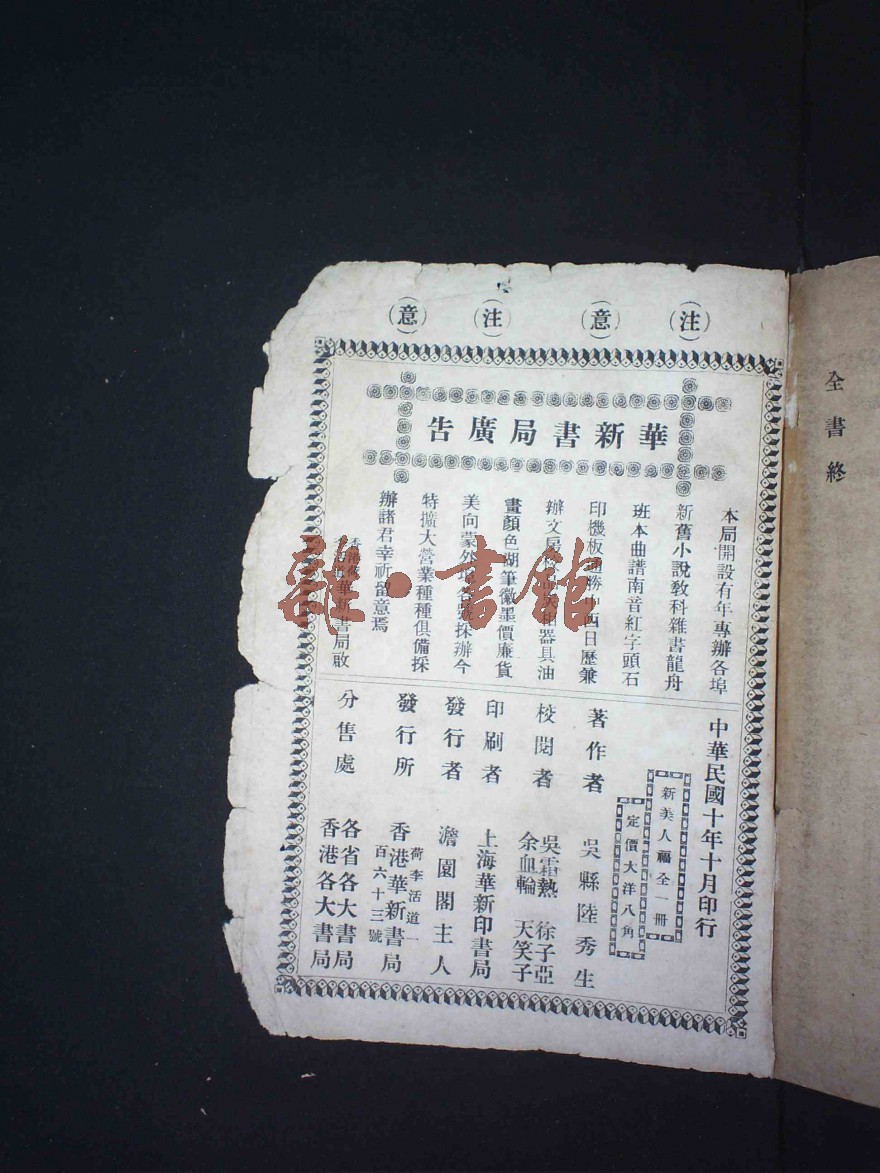 全書終
（注）（意）（注）（意）
華新書局廣告
本局開設有年專辦各埠
新舊小說教科雜書龍舟
班本曲譜南音紅字頭石
印機板通勝中西日歷兼
辦文房 器具油
畫顏色湖筆徽墨價廉貨
美向蒙外埠各號採辦今
特擴大營業種種俱備採
辦諸君幸祈留意焉
香港 華新書局啟
中華民國十年十月印行
新美人禍全一冊
定價大洋八角
著作者 吳縣陸秀生
校閱者 吳霜熱 徐子亞
余血輪 天笑子
印刷者 上海華新印書局
發行者 澹園閣主人
發行所 香港華新書局
荷李活道一
百六十三號
分售處 各省各大書局
香港各大書局
雜·書館